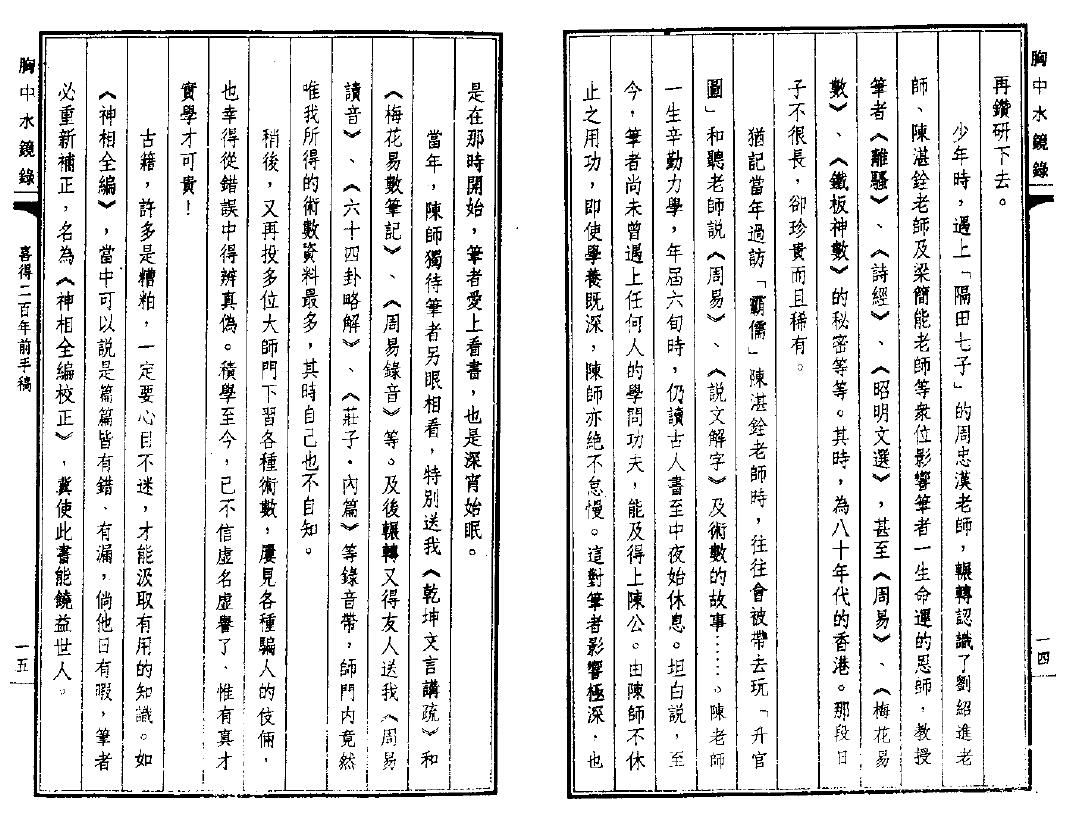 胸中水鏡錄
一四
再鑽研下去。
少年時，遇上「隔田七子」的周忠漢老師，輾轉認識了劉紹進老
師、陳湛銓老師及梁簡能老師等衆位影響筆者一生命運的恩師，教授
筆者《離騷》、《詩經》、《昭明文選》，甚至《周易》、《梅花易
數》、《鐵板神數》的秘密等等。其時，為八十年代的香港。那段日
子不很長，卻珍貴而且稀有。
猶記當年過訪「霸儒」陳湛銓老師時，往往會被帶去玩「升官
圖」和聽老師說《周易》、《說文解字》及術數的故事……。陳老師
一生辛勤力學，年屆六旬時，仍讀古人書至中夜始休息。坦白說，至
今，筆者尚未曾遇上任何人的學問功夫，能及得上陳公。由陳師不休
止之用功，即使學養既深，陳師亦絕不怠慢。這對筆者影響極深，也
是在那時開始，筆者愛上看書，也是深宵始眠。
當年，陳師獨待筆者另眼相看，特別送我《乾坤文言講疏》和
《梅花易數筆記》、《周易錄音》等。及後輾轉又得友人送我《周易
讀音》、《六十四卦略解》、《莊子·內篇》等錄音帶，師門內竟然
唯我所得的術數資料最多，其時自己也不自知。
稍後，又再投多位大師門下習各種術數，屢見各種騙人的伎倆，
也幸得從錯誤中得辨真偽。積學至今，己不信虛名虛譽了、惟有真才
實學才可貴！
古籍，許多是糟粕，一定要心目不迷，才能汲取有用的知識。如
《神相全編》，當中可以說是篇篇皆有錯、有漏，倘他日有暇，筆者
必重新補正，名為《神相全編校正》，冀使此書能饒益世人。
胸中水鏡錄
喜得二百年前手稿
一五